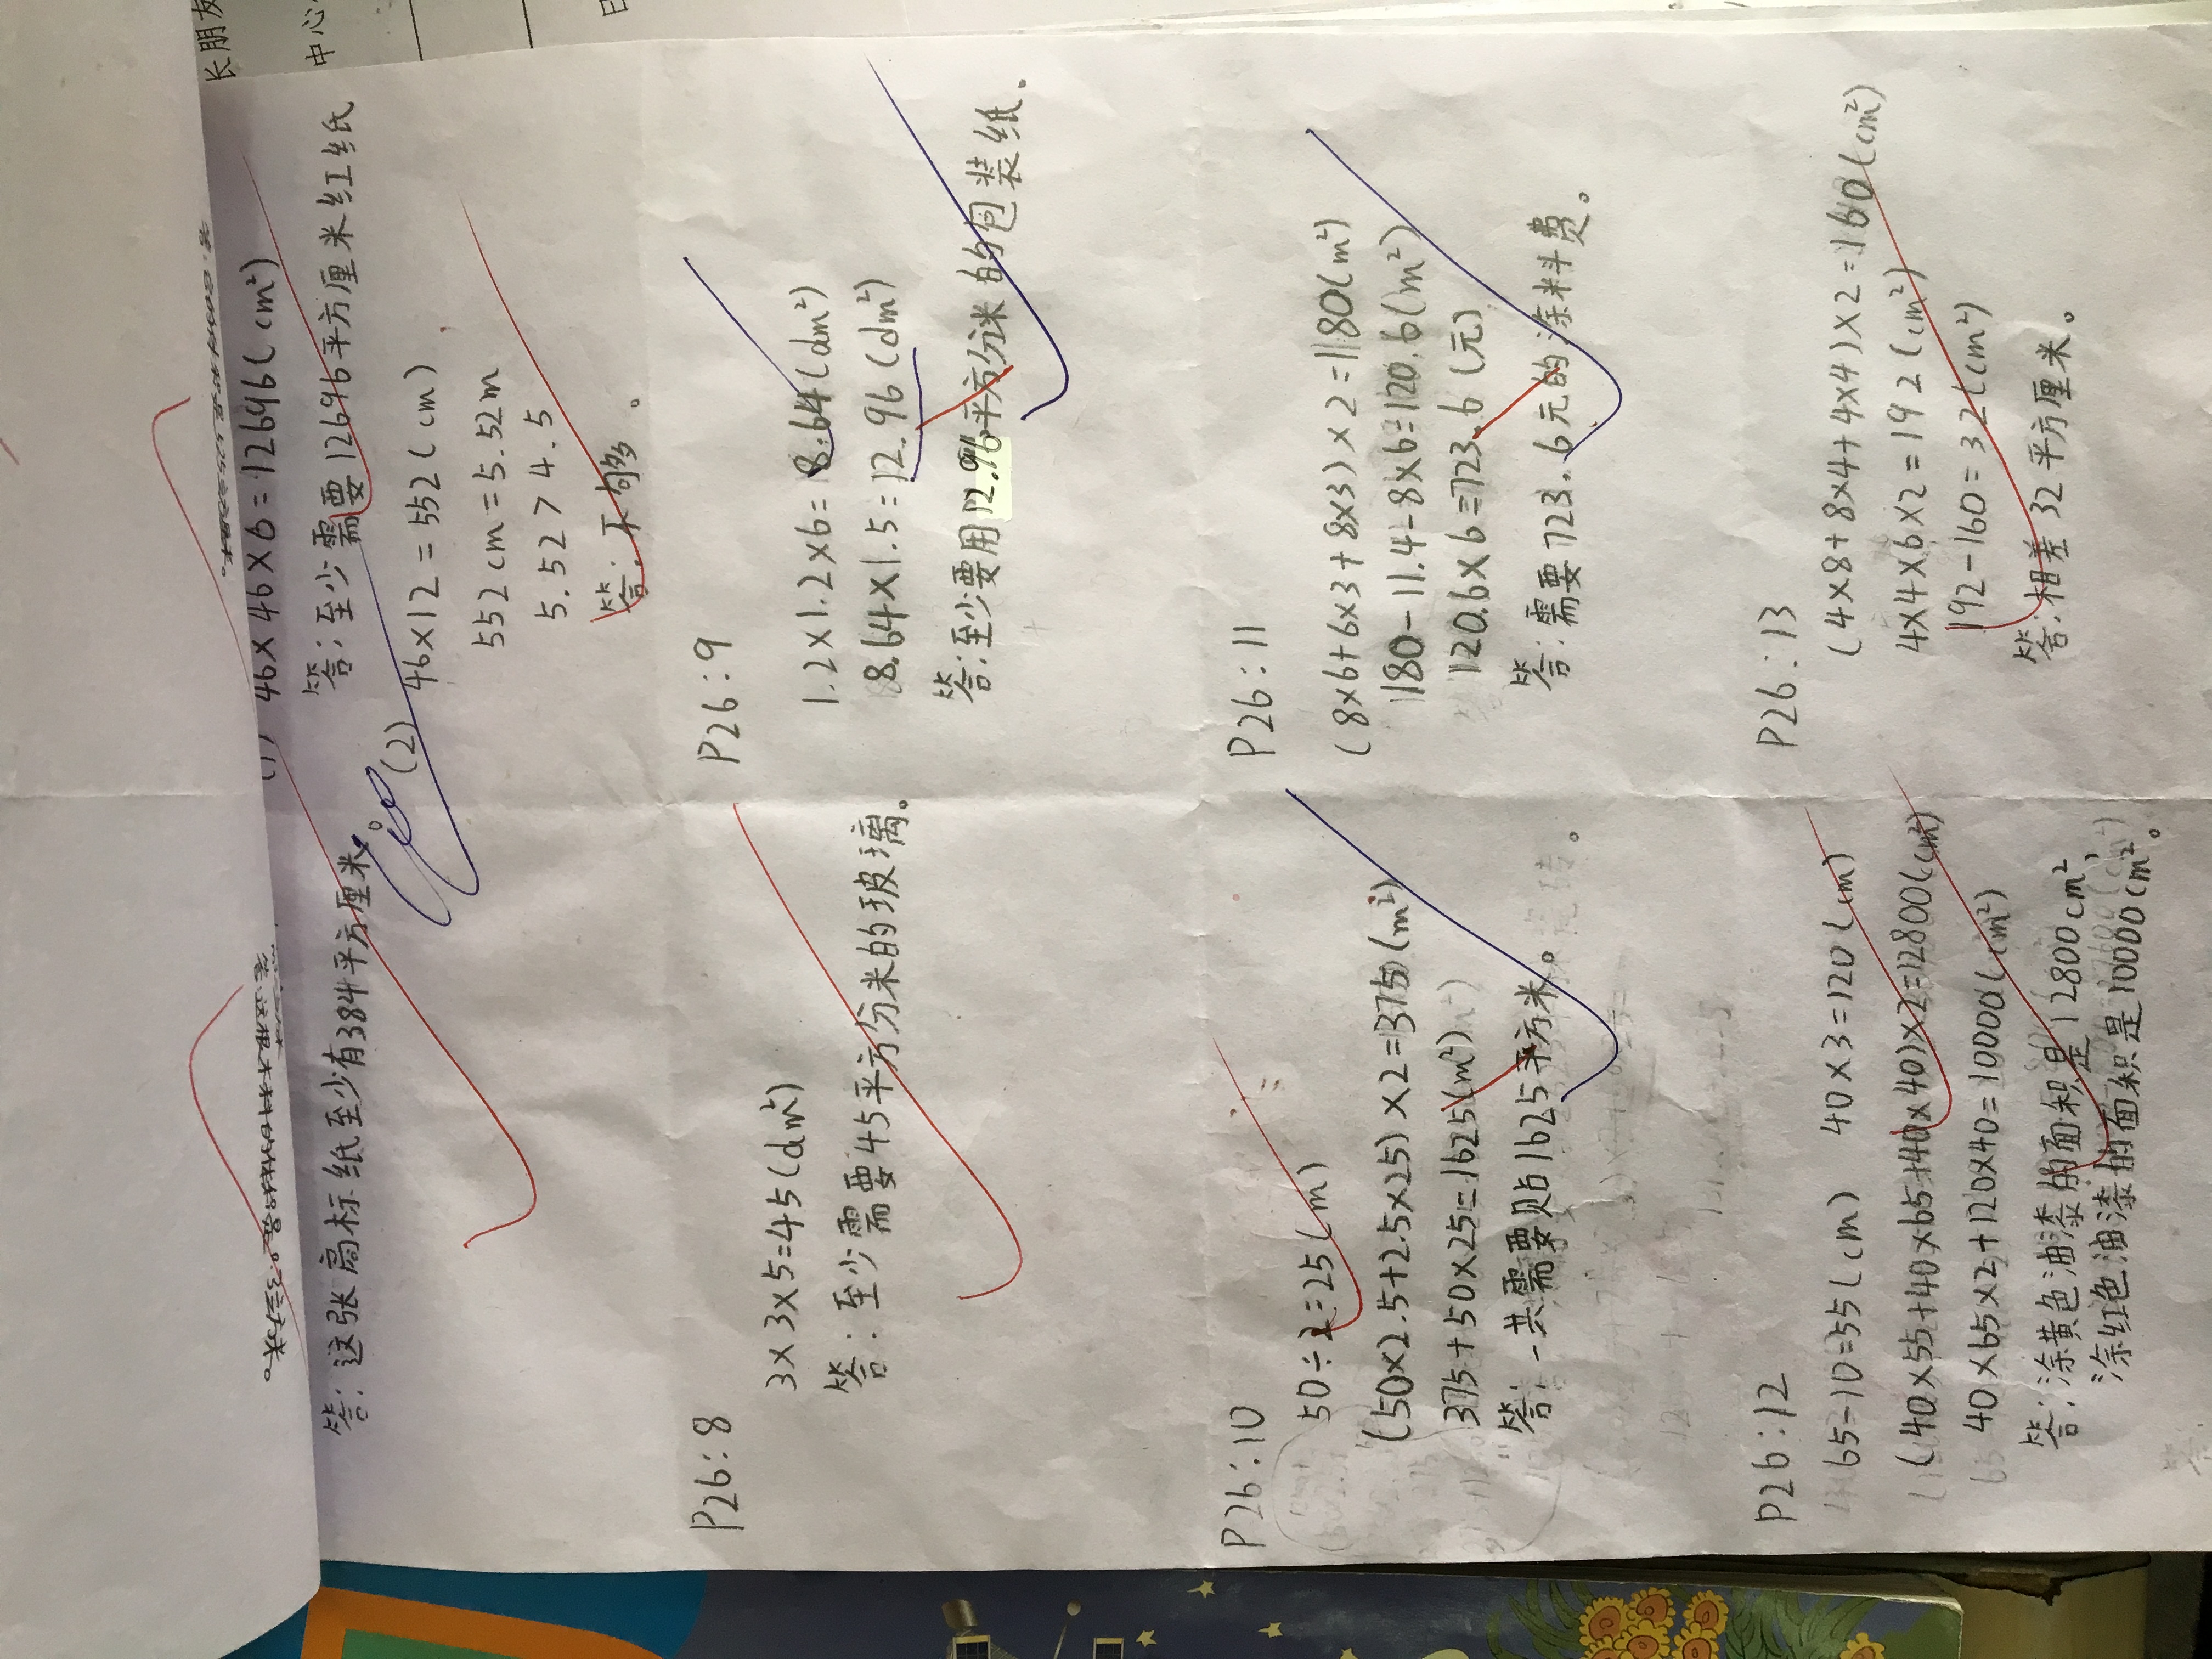 长朋友
中心
日
答：这张高标纸至少有384平方厘米。
(1) 46×46×6=12696(cm²)
答：至少需要12696平方厘米红纸
(2) 46×12=552(cm)
552cm=5.52m
5.52>4.5
答：不够。
P26：8
3×3×5=45(dm²)
答：至少需要45平方分米的玻璃。
P26：9
1.2×1.2×6=8.64(dm²)
8.64×1.5=12.96(dm²)
答：至少要用12.96平方分米的包装纸。
P26：10
50÷2=25(m)
(50×2.5+2.5×25)×2=375(m²)
375+50×25=1625(m²)
答：一共需要贴1625平方米。
P26：11
(8×6+6×3+8×3)×2=180(m²)
180-11.4-8×6=120.6(m²)
120.6×6=723.6(元)
答：需要723.6元的涂料费。
P26：12
65-10=55(cm) 40×3=120(cm)
(40×55+40×65+40×40)×2=12800(cm²)
40×65×2+120×40=10000(cm²)
答：涂黄色油漆的面积是12800cm²，
涂红色油漆的面积是10000cm²。
P26：13
(4×8+8×4+4×4)×2=160(cm²)
4×4×6×2=192(cm²)
192-160=32(cm²)
答：相差32平方厘米。